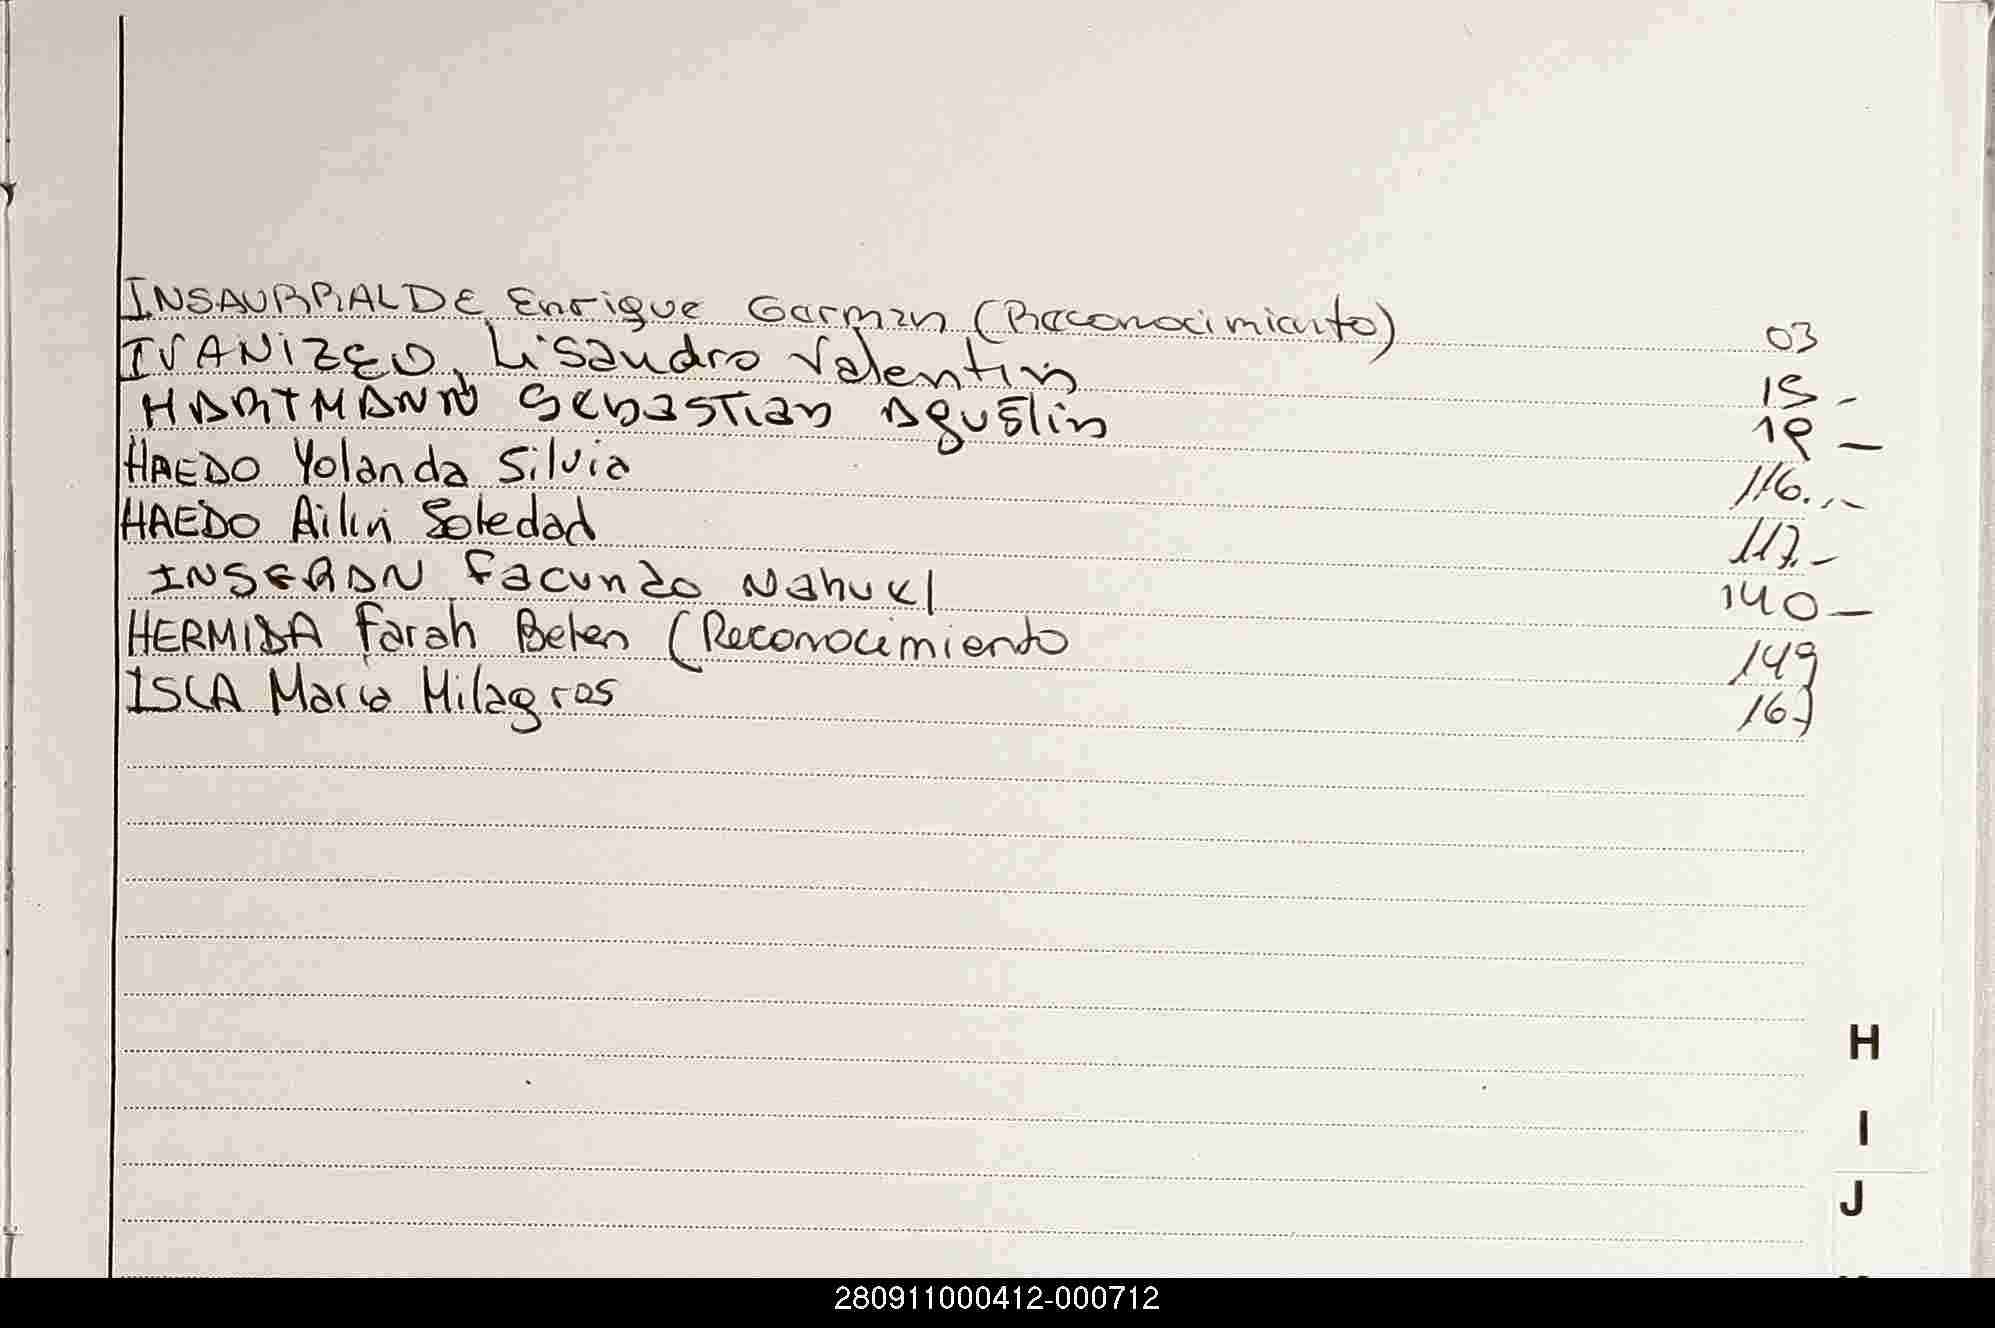 INSAURRALDE Enrique German (Reconocimiento) 03
IVANIZEO, Lisandro Valentin 15 -
HARTMANN Sebastian Agustin 19 -
HAEDO Yolanda Silvia 116.-
HAEDO Ailin Soledad 117.-
INSERAN Facundo Nahuel 140 -
HERMIDA Farah Belen (Reconocimiento 149
ISLA Maria Milagros 167
H
I
J
280911000412-000712